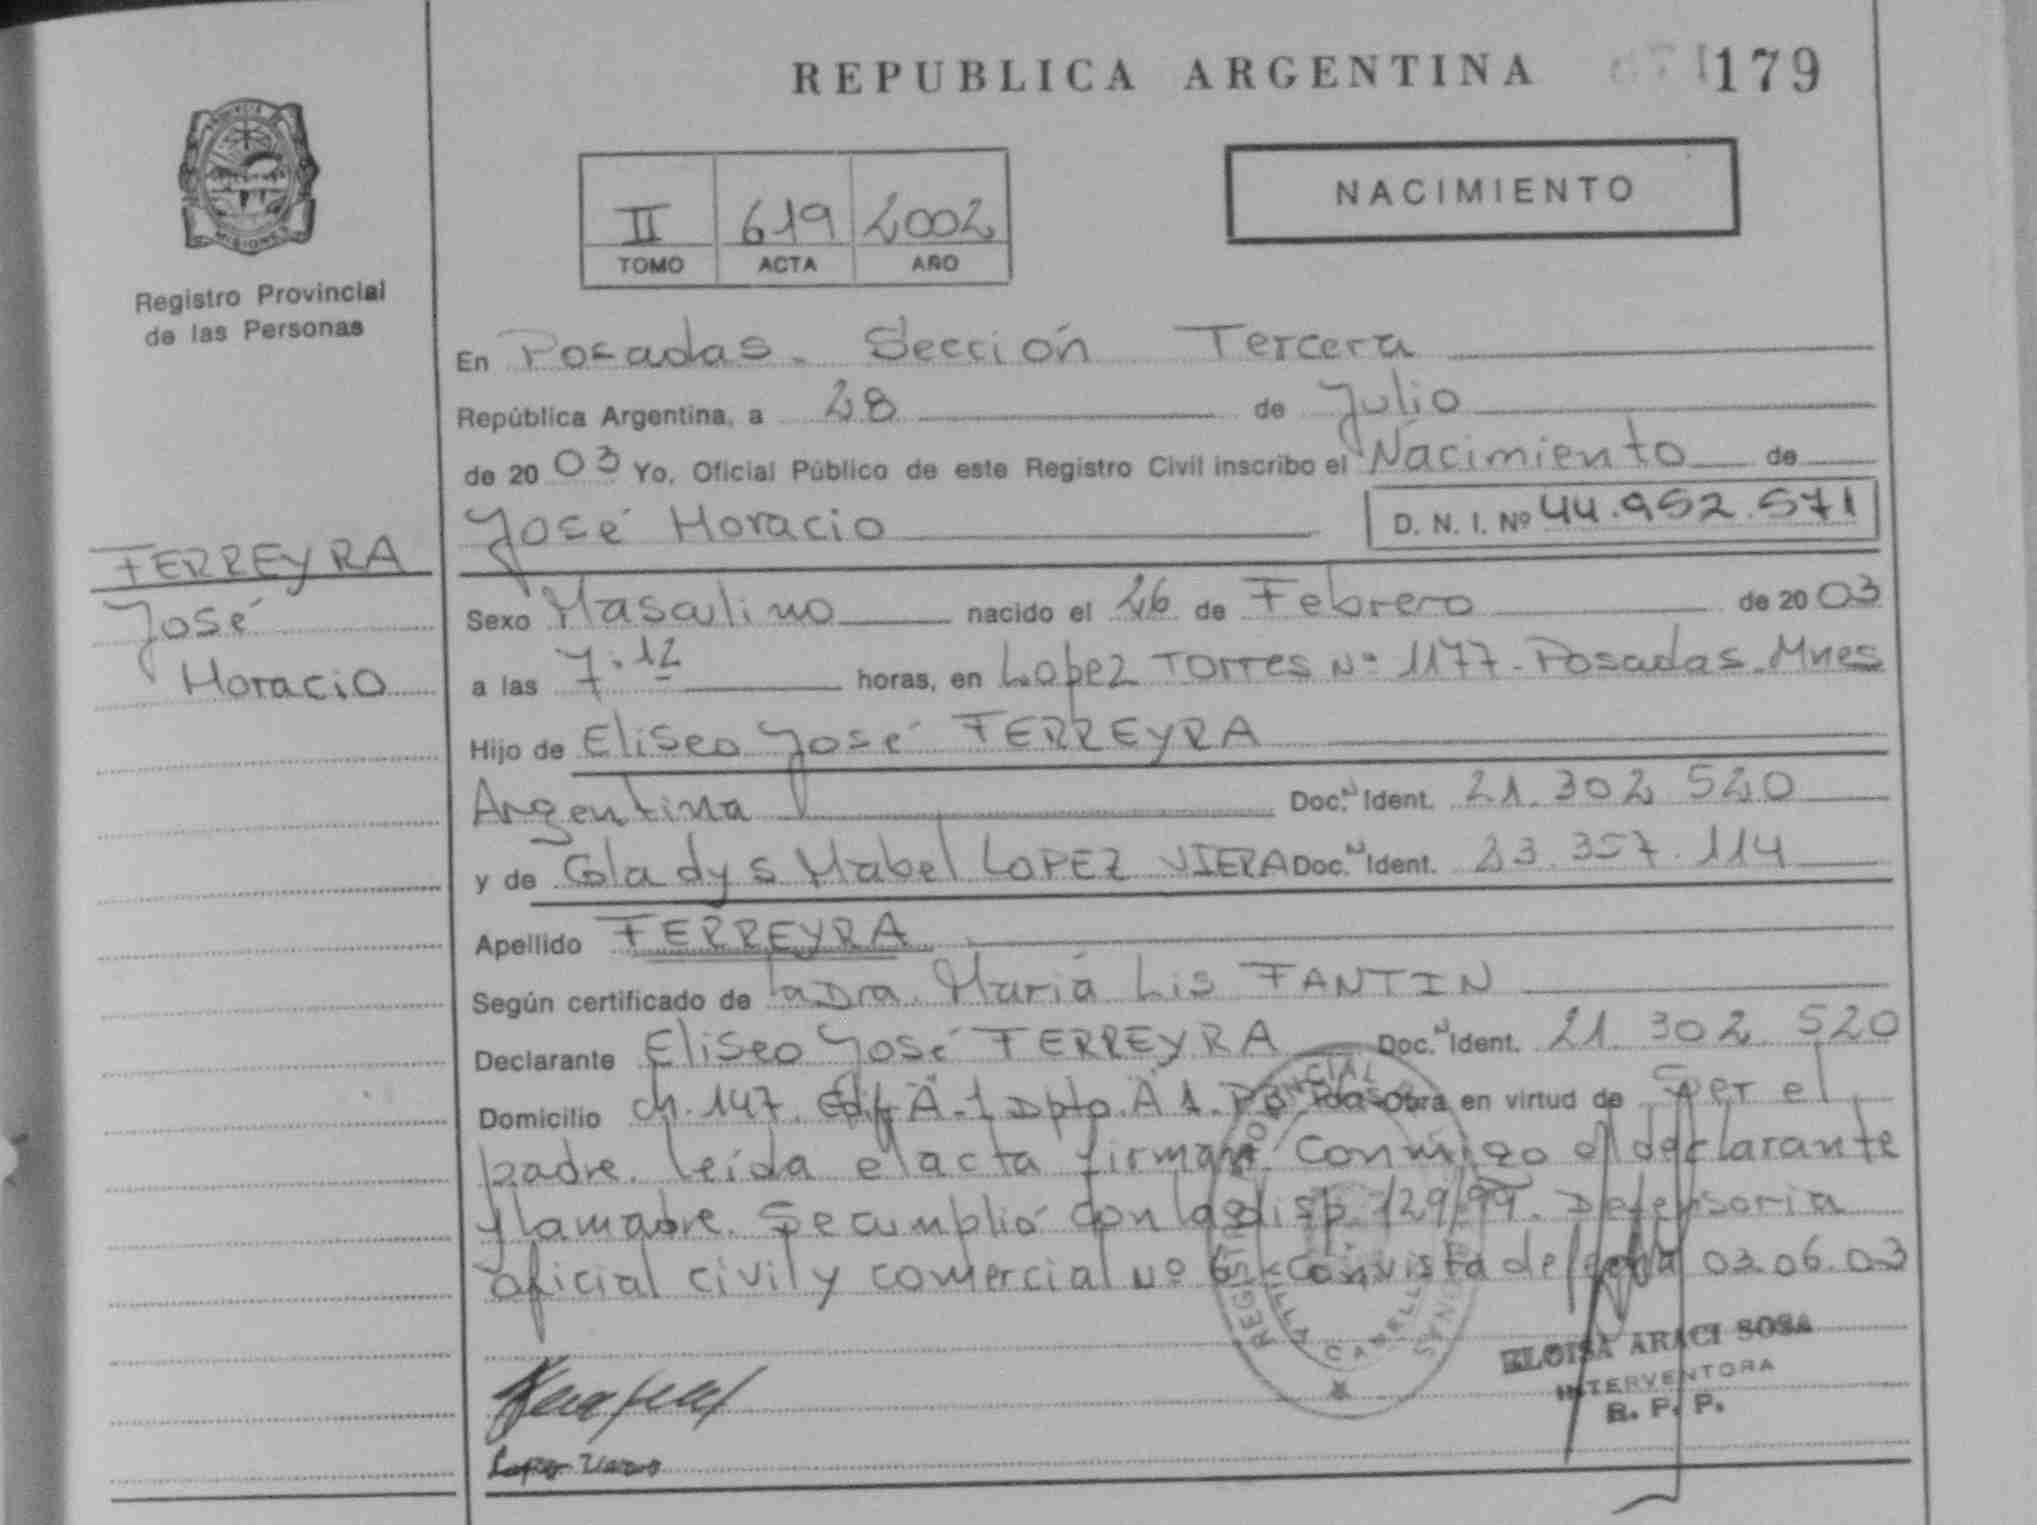 PROVINCIA
MISIONES
Registro Provincial
de las Personas
FERREYRA
José
Horacio
REPUBLICA ARGENTINA
179
NACIMIENTO
II 619 2002
TOMO ACTA AÑO
En Posadas. Sección Tercera
República Argentina, a 28 de Julio
de 20 03 Yo, Oficial Público de este Registro Civil inscribo el Nacimiento de
José Horacio D. N. I. Nº 44.952.571
Sexo Masculino nacido el 26 de Febrero de 20 03
a las 7.12 horas, en Lopez Torres Nº 1177. Posadas. Mnes
Hijo de Eliseo José FERREYRA
Argentina Doc. Ident. 21.302.520
y de Gladys Mabel LOPEZ VIERA Doc. Ident. 23.357.114
Apellido FERREYRA
Según certificado de la Dra. María Lis FANTIN
Declarante Eliseo José FERREYRA Doc. Ident. 21.302.520
Domicilio ch. 147. Edif A-1 Dpto. A 1. Obra en virtud de Ser el
padre. leída el acta firman conmigo el declarante
y la madre. Se cumplió con la disp. 129/99. Defensoria
oficial civil y comercial Nº 6. con vista de fecha 03.06.03
ELOISA ARACI SOSA
INTERVENTORA
R. P. P.